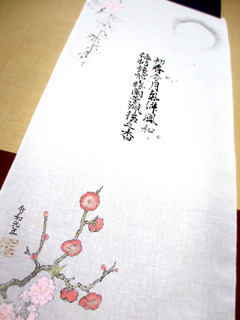 初春令月氣淑風和
梅披鏡前之粉蘭薫珮後之香
令和元年